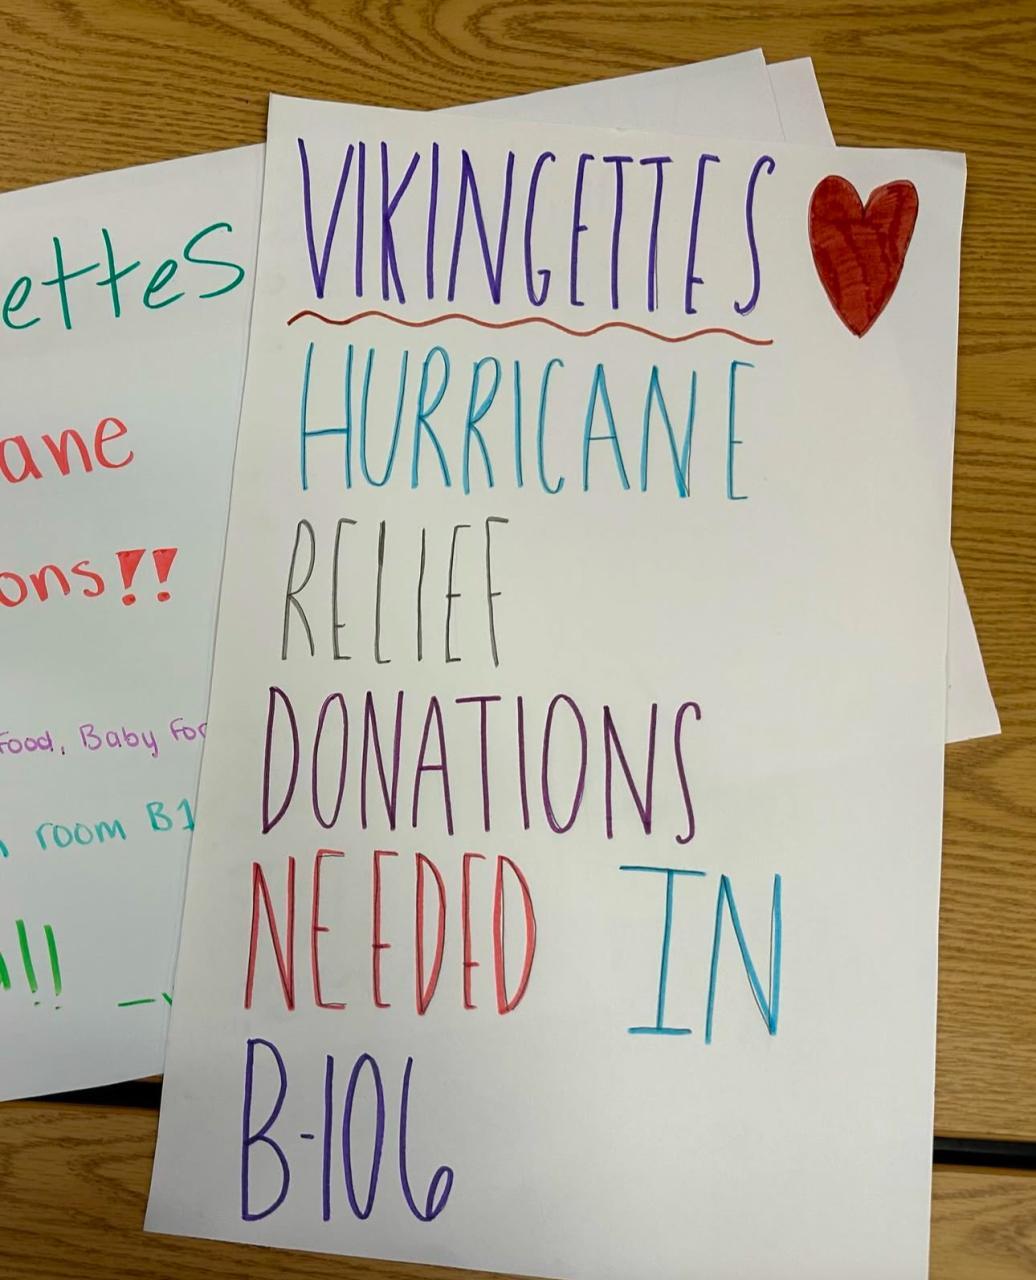 VIKINGETTES
HURRICANE
RELIEF
DONATIONS
NEEDED IN
B-106
ettes
ane
ons!!
Food, Baby For
room B1
!!